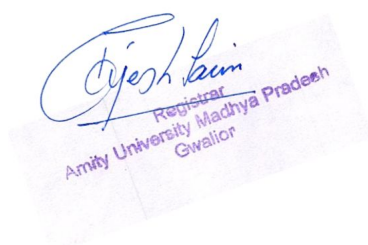 Rajesh Jain
Registrar
Amity University Madhya Pradesh
Gwalior